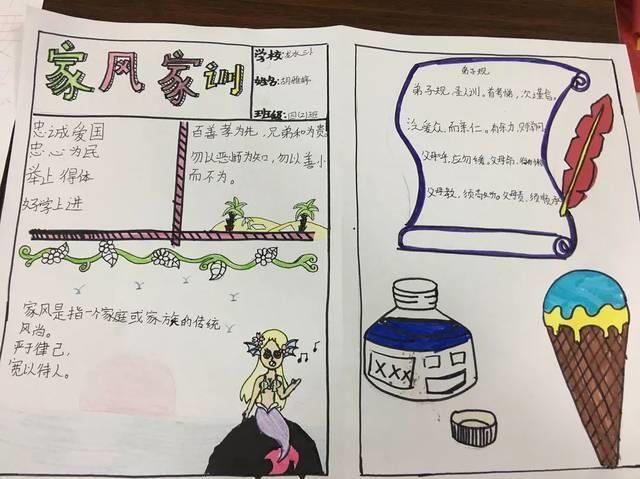 家风家训
学校:龙水三小
姓名:胡雅婷
班级:四(2)班
忠诚爱国
忠心为民
举止得体
好学上进
百善孝为先,兄弟和为贵
勿以恶师为知,勿以善小
而不为。
家风是指一个家庭或家族的传统
风尚。
严于律己,
宽以待人。
弟子规
弟子规,圣人训。首孝悌,次谨信。
泛爱众,而亲仁。有余力,则学文。
父母呼,应勿缓,父母命,
父母教,须敬听。父母责,须顺承
XXX